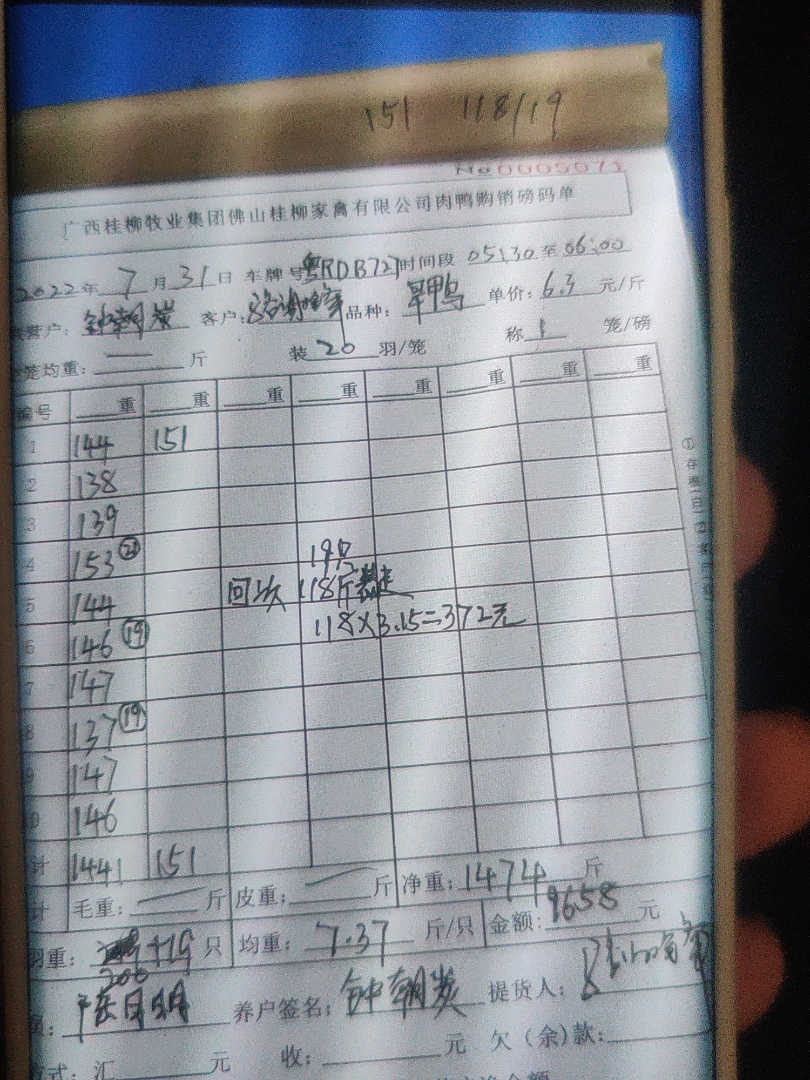 151 118/19
No 0005071
广西桂柳牧业集团佛山桂柳家禽有限公司肉鸭购销磅码单
2022年 7 月 31 日 车牌号 粤RDB727 时间段 05:30 至 06:00
营户: 钟朝炭 客户: 品种: 旱鸭 单价: 6.3 元/斤
笼均重: — 斤 装 20 羽/笼 称 1 笼/磅
编号 重 重 重 重 重 重 重 重
1 144 151
2 138
3 139
4 153 ㉑ 19只
5 144 回次 118斤
6 146 ⑲ 118×3.15=372元
7 147
8 137 ⑲
9 147
10 146
计 1441 151
计 毛重: — 斤 皮重: — 斤 净重: 1474 斤
羽重: +19 只 均重: 7.37 斤/只 金额: 9658 元
200
养户签名: 钟朝炭 提货人:
式: 汇 元 收: 元 欠(余)款:
①存根(白)②客户